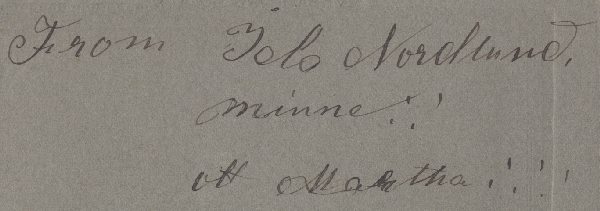 From Nels Nordlund.
minne!!
ott Martha!!!!